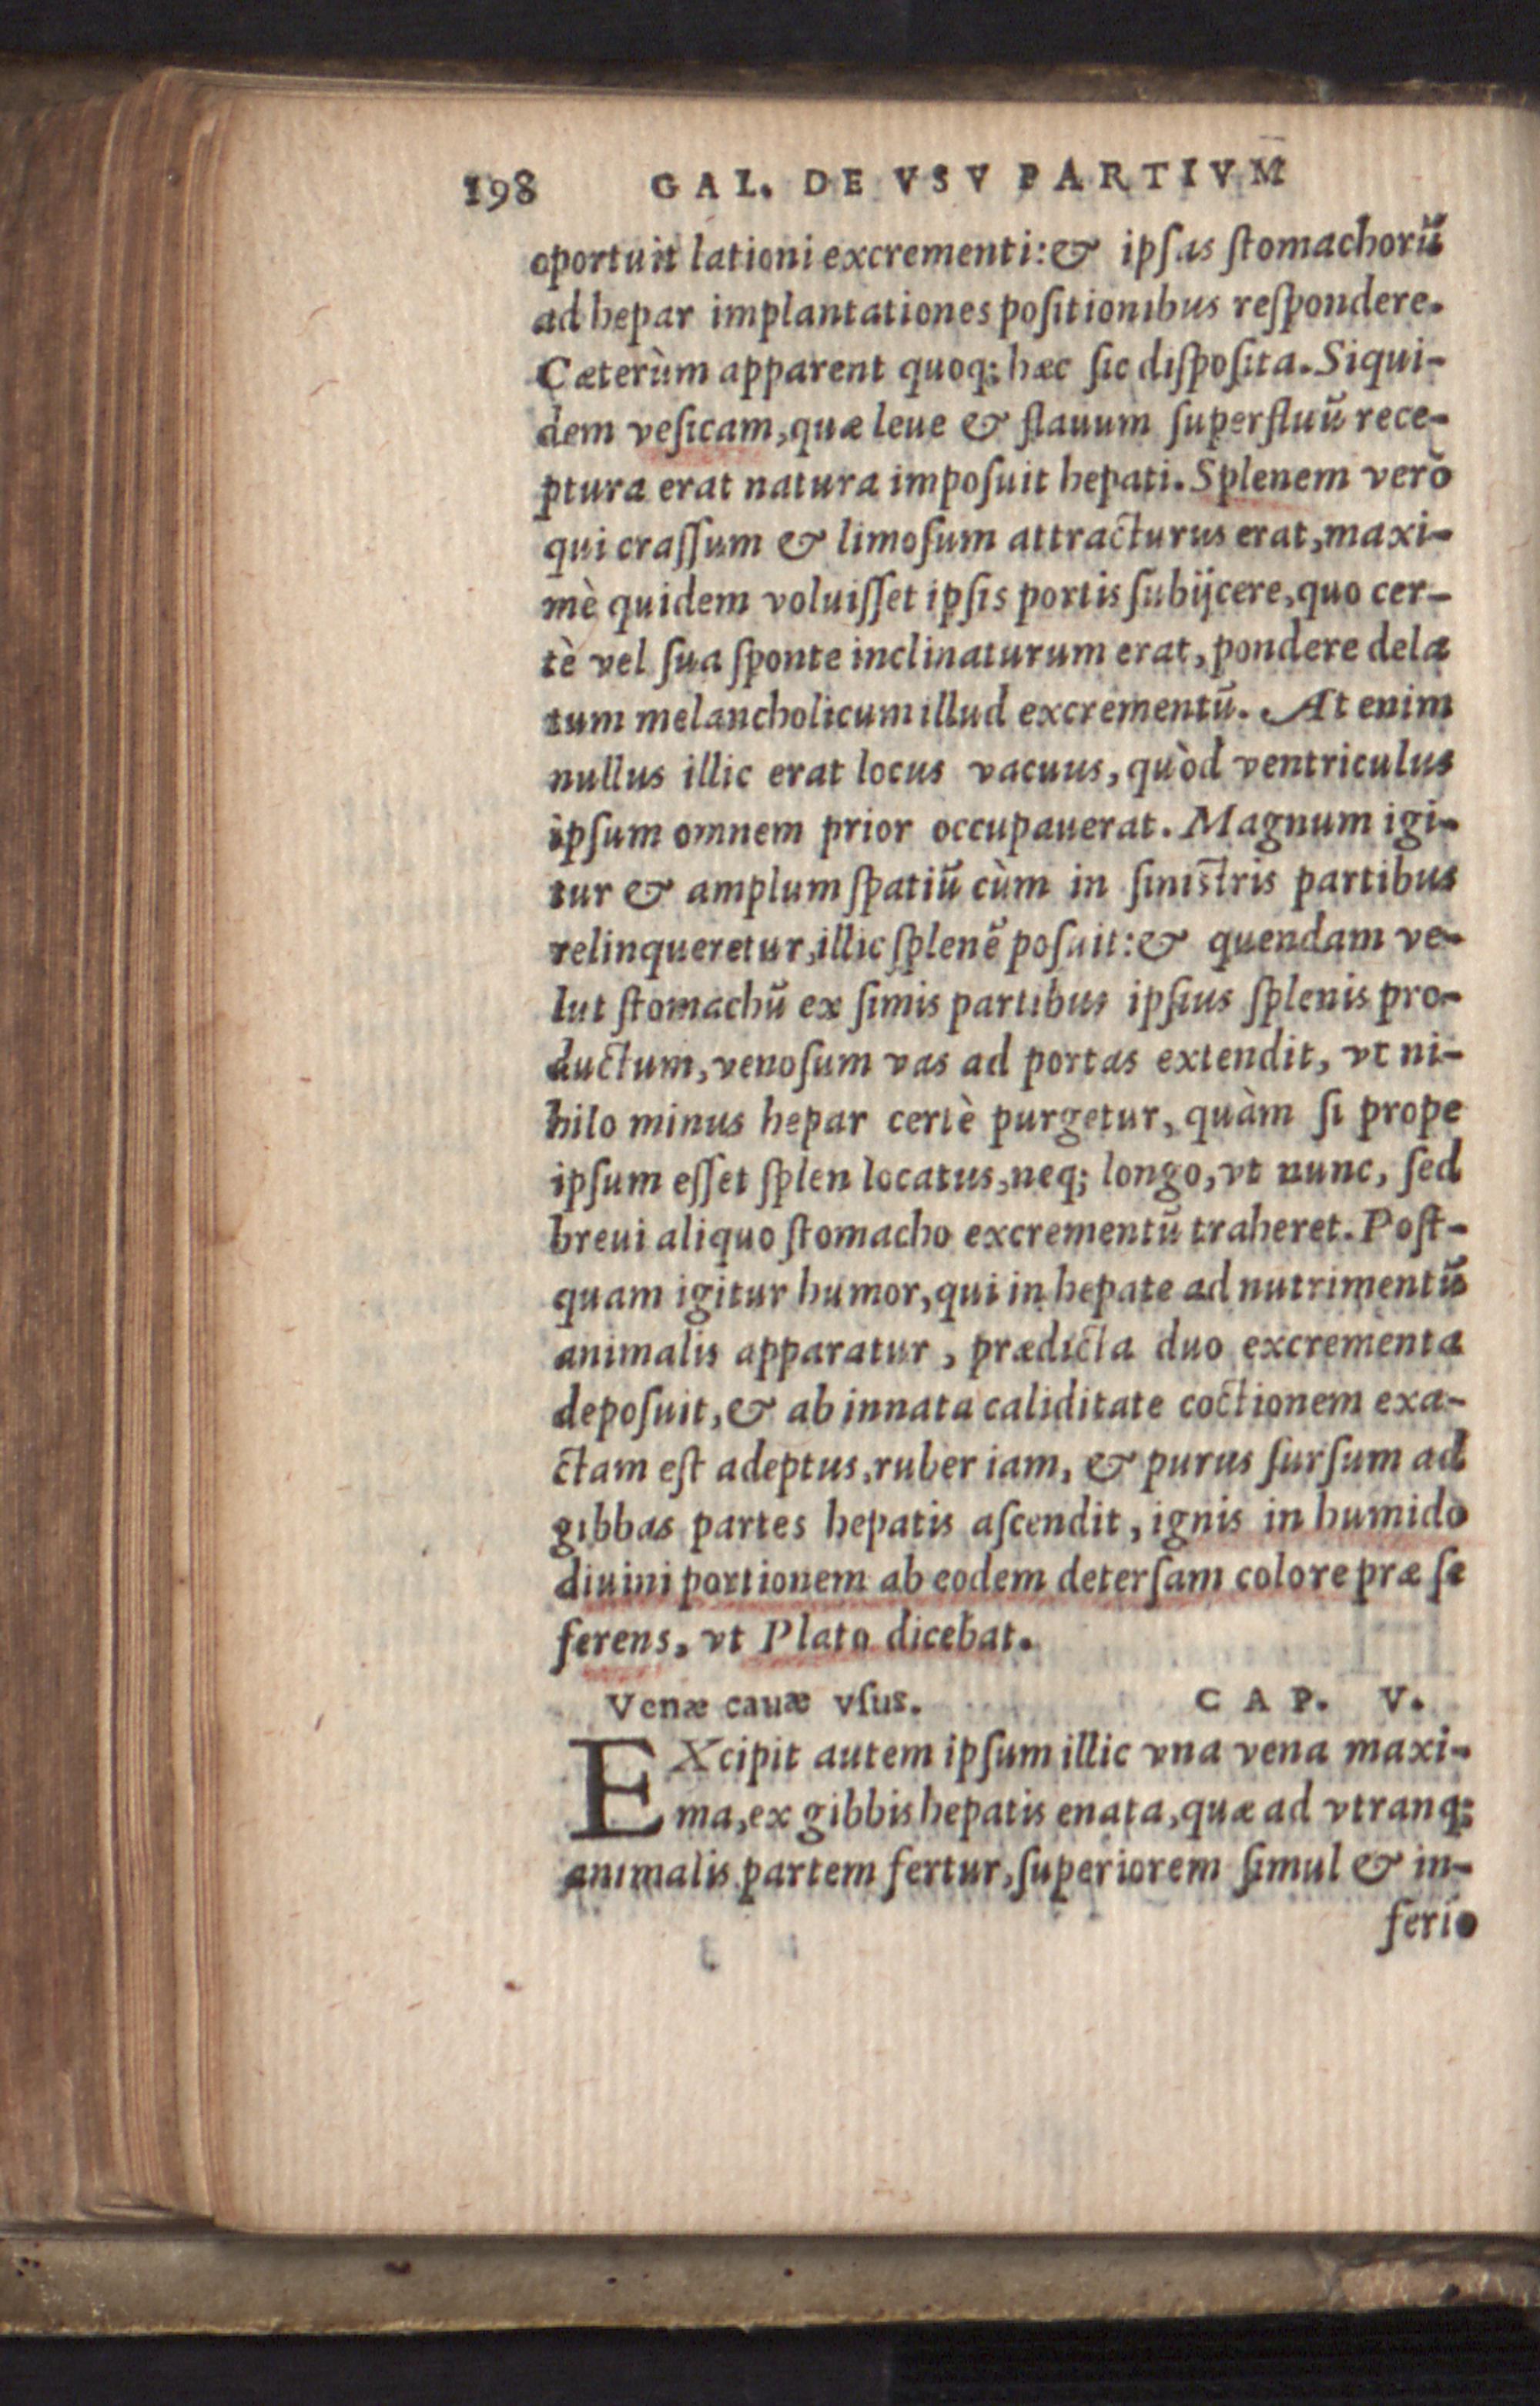 198 GAL. DE VSV PARTIVM
oportuit lationi excrementi:& ipsas stomachorū
ad hepar implantationes positionibus respondere.
Cæterùm apparent quoq; hæc sic disposita. Siqui-
dem vesicam, quæ leue & flauum superfluū rece-
ptura erat natura imposuit hepati. Splenem verò
qui crassum & limosum attracturus erat, maxi-
mè quidem voluisset ipsis portis subijcere, quo cer-
tè vel sua sponte inclinaturum erat, pondere dela
tum melancholicum illud excrementū. At enim
nullus illic erat locus vacuus, quòd ventriculus
ipsum omnem prior occupauerat. Magnum igi-
tur & amplum spatiū cùm in sinistris partibus
relinqueretur, illic splenē posuit:& quendam ve-
lut stomachū ex simis partibus ipsius splenis pro-
ductum, venosum vas ad portas extendit, vt ni-
hilo minus hepar certè purgetur, quàm si prope
ipsum esset splen locatus, neq; longo, vt nunc, sed
breui aliquo stomacho excrementū traheret. Post-
quam igitur humor, qui in hepate ad nutrimentū
animalis apparatur, prædicta duo excrementa
deposuit, & ab innata caliditate coctionem exa-
ctam est adeptus, ruber iam, & purus sursum ad
gibbas partes hepatis ascendit, ignis in humido
diuini portionem ab eodem detersam colore præ se
ferens, vt Plato dicebat.
Venæ cauæ vsus. CAP. V.
EXcipit autem ipsum illic vna vena maxi-
ma, ex gibbis hepatis enata, quæ ad vtranq;
animalis partem fertur, superiorem simul & in-
ferio